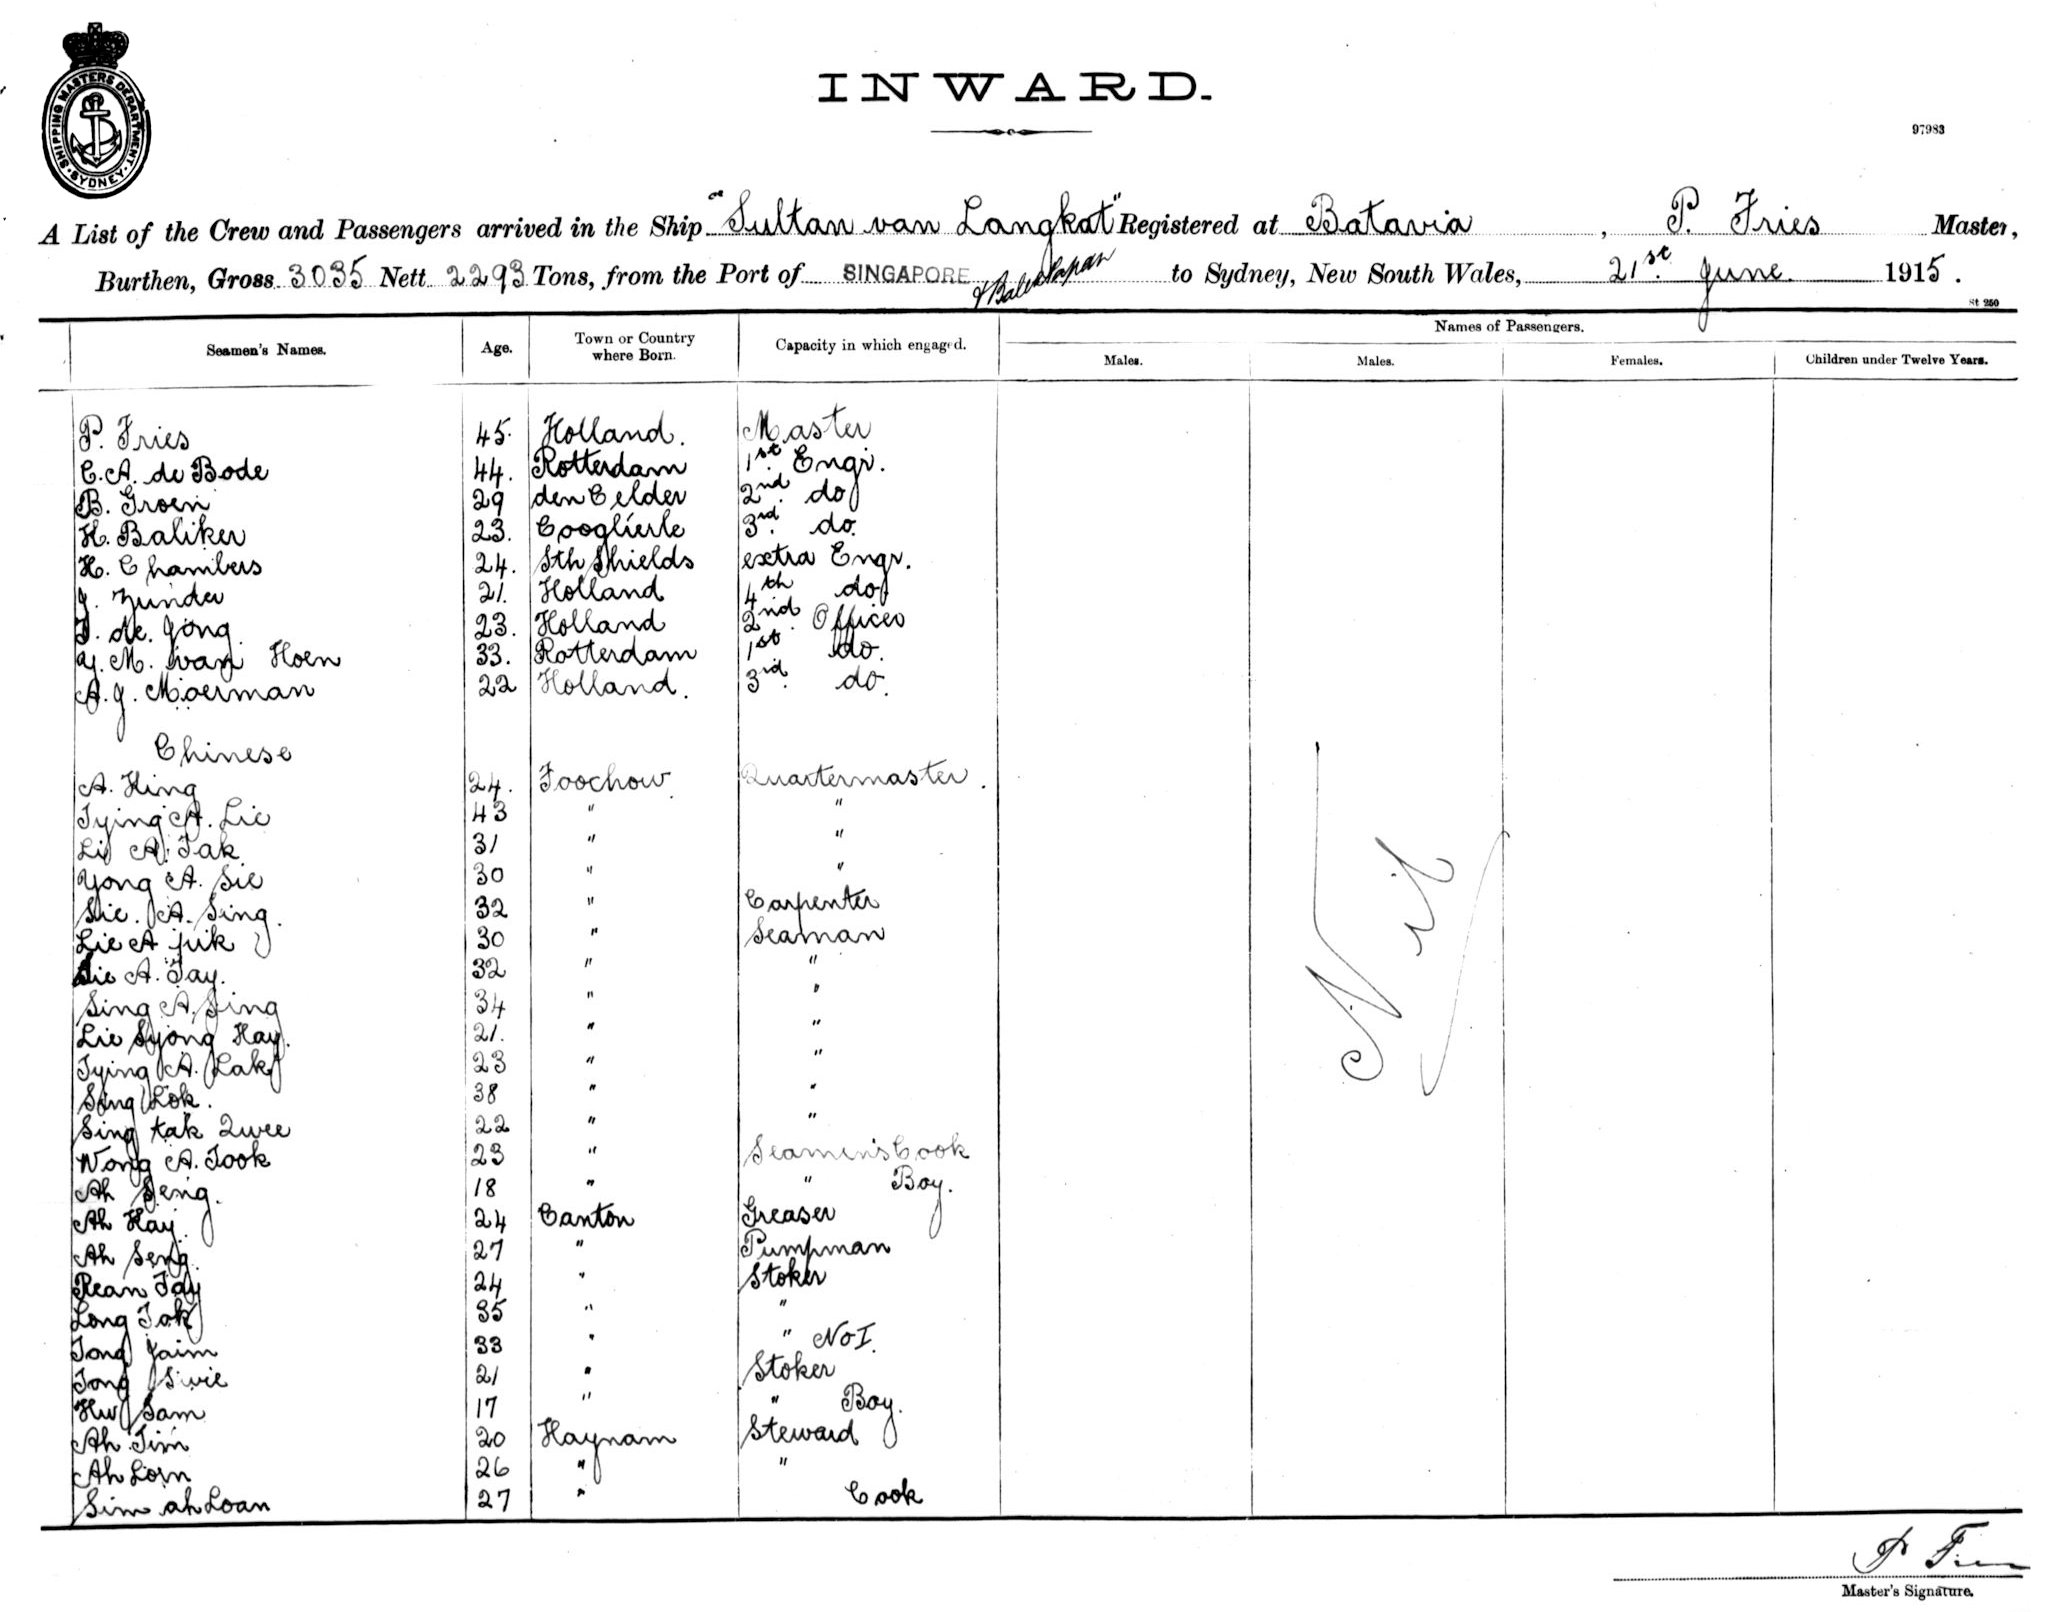 SHIPPING MASTERS DEPARTMENT. SYDNEY.
INWARD.
97983
A List of the Crew and Passengers arrived in the Ship "Sultan van Langkat" Registered at Batavia, P. Fries Master,
Burthen, Gross 3035 Nett 2293 Tons, from the Port of SINGAPORE & Balikpapan to Sydney, New South Wales, 21st June 1915.
St 250
Seamen's Names. Age. Town or Country where Born. Capacity in which engaged. Names of Passengers.
Males. Males. Females. Children under Twelve Years.
P. Fries 45. Holland. Master
C. A. de Bode 44. Rotterdam 1st Engr.
B. Groen 29 den Celder 2nd do
H. Baliker 23. Cooglierle 3rd do.
H. Chambers 24. Sth Shields extra Engr.
J. Zunder 21. Holland 4th do
J. de Jong 23. Holland 2nd Officer
J. M. van Hoen 33. Rotterdam 1st do.
A. J. Moerman 22 Holland. 3rd do.
Chinese
A. King 24. Foochow Quartermaster.
Tying A. Lie 43 " "
Li A. Tak 31 " "
Yong A. Sie 30 " "
Sie. A. Sing. 32 " Carpenter
Lie A juk 30 " Seaman
Lie A. Tay. 32 " "
Sing A. Sing 34 " "
Lie Syong Hay. 21. " "
Tying A. Lak 23 " "
Song Lok. 38 " "
Sing tak Quee 22 " "
Wong A. Took 23 " Seamen's Cook
Ah Seng. 18 " " Boy.
Ah Hay. 24 Canton Greaser
Ah Seng. 27 " Pumpman
Rean Tay 24 " Stoker
Long Tok 35 " "
Tong Jaim 33 " " No I.
Tong Swie 21 " Stoker
Hw Sam 17 " " Boy.
Ah Tim 20 Haynam Steward
Ah Lorn 26 " "
Sim ah Loan 27 " Cook
Nil
P Fries
Master's Signature.